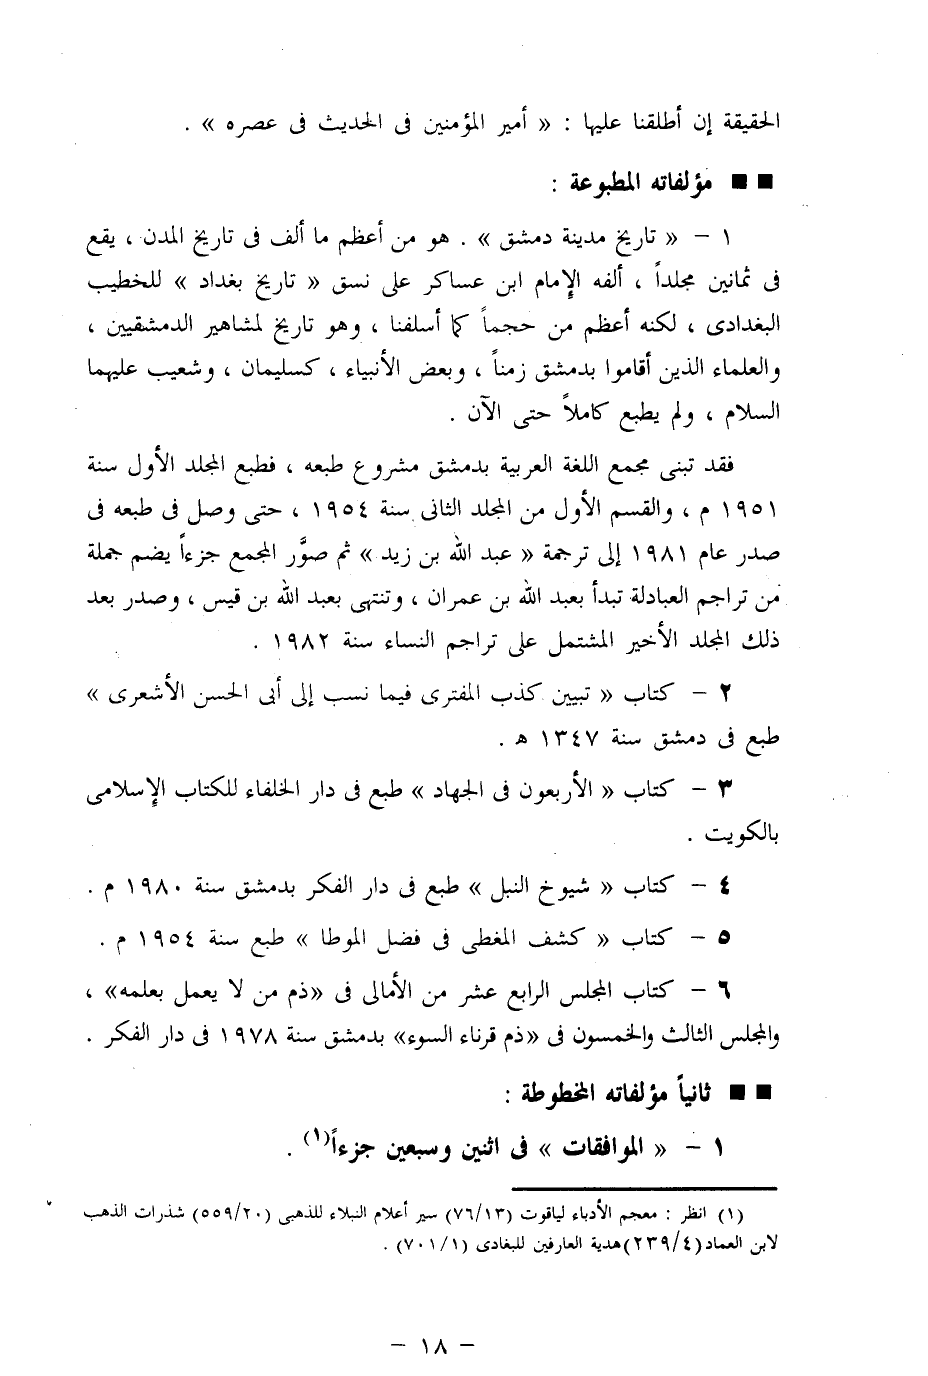 الحقيقة إن أطلقنا عليها : « أمير المؤمنين فى الحديث فى عصره » .
■ ■ مؤلفاته المطبوعة :
١ – « تاريخ مدينة دمشق » . هو من أعظم ما ألف فى تاريخ المدن ، يقع
فى ثمانين مجلداً ، ألفه الإمام ابن عساكر على نسق « تاريخ بغداد » للخطيب
البغدادى ، لكنه أعظم من حجماً كما أسلفنا ، وهو تاريخ لمشاهير الدمشقيين ،
والعلماء الذين أقاموا بدمشق زمناً ، وبعض الأنبياء ، كسليمان ، وشعيب عليهما
السلام ، ولم يطبع كاملاً حتى الآن .
فقد تبنى مجمع اللغة العربية بدمشق مشروع طبعه ، فطبع المجلد الأول سنة
١٩٥١ م ، والقسم الأول من المجلد الثانى سنة ١٩٥٤ ، حتى وصل فى طبعه فى
صدر عام ١٩٨١ إلى ترجمة « عبد الله بن زيد » ثم صوَّر المجمع جزءاً يضم جملة
من تراجم العبادلة تبدأ بعبد الله بن عمران ، وتنتهى بعبد الله بن قيس ، وصدر بعد
ذلك المجلد الأخير المشتمل على تراجم النساء سنة ١٩٨٢ .
٢ – كتاب « تبيين كذب المفترى فيما نسب إلى أبى الحسن الأشعرى »
طبع فى دمشق سنة ١٣٤٧ هـ .
٣ – كتاب « الأربعون فى الجهاد » طبع فى دار الخلفاء للكتاب الإسلامى
بالكويت .
٤ – كتاب « شيوخ النبل » طبع فى دار الفكر بدمشق سنة ١٩٨٠ م .
٥ – كتاب « كشف المغطى فى فضل الموطا » طبع سنة ١٩٥٤ م .
٦ – كتاب المجلس الرابع عشر من الأمالى فى «ذم من لا يعمل بعلمه» ،
والمجلس الثالث والخمسون فى «ذم قرناء السوء» بدمشق سنة ١٩٧٨ فى دار الفكر .
■ ■ ثانياً مؤلفاته المخطوطة :
١ – « الموافقات » فى اثنين وسبعين جزءاً(١) .
(١) انظر : معجم الأدباء لياقوت (٧٦/١٣) سير أعلام النبلاء للذهبى (٥٥٩/٢٠) شذرات الذهب
لابن العماد(٢٣٩/٤)هدية العارفين للبغادى (٧٠١/١) .
– ١٨ –